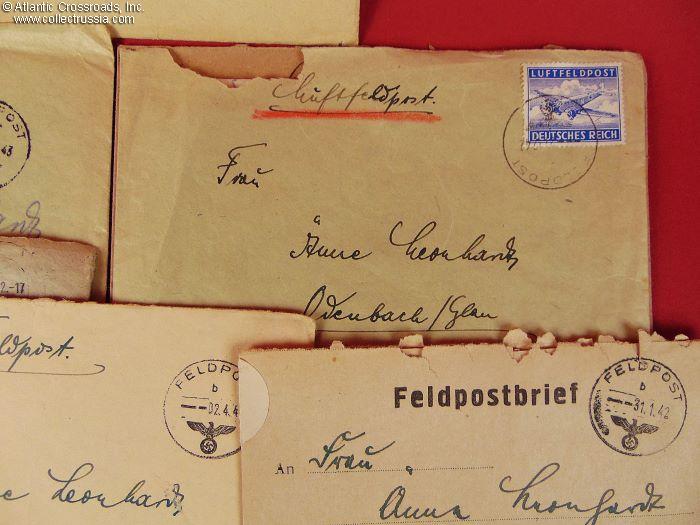 © Atlantic Crossroads, Inc.
www.collectrussia.com
Luftfeldpost.
LUFTFELDPOST
DEUTSCHES REICH
FELDPOST
Frau
Änne Leonhardt
Odenbach/Glan
POST
43
2.-17
ldpost.
FELDPOST
b
02.4.4
e Leonhardt
Feldpostbrief
FELDPOST
b
31.1.42
An Frau
Änna Leonhardt